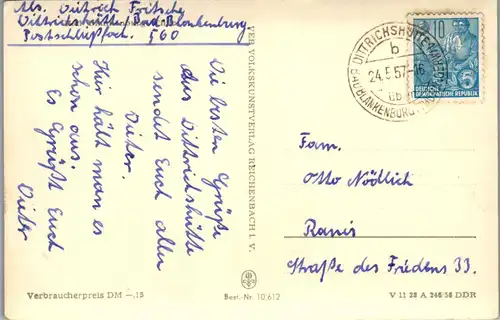 Abs. Dittrich Fritsche
Dittrichshütte/Bad Blankenburg.
Postschließfach. 560
Die besten Grüße
aus Dittrichshütte
sendet Euch allen
Dieter.
Hier hält man es
schon aus.
Es Grüßt Euch
Dieter
VEB VOLKSKUNSTVERLAG REICHENBACH I. V.
DITTRICHSHÜTTE
b
24.5.57-16
üb
BAD BLANKENBURG
10
5
DEUTSCHE
DEMOKRATISCHE REPUBLIK
Fam.
Otto Nödlich
Ranis
Straße des Friedens 33.
Verbraucherpreis DM –,15
Best.-Nr. 10/612
V 11 28 A 246/56 DDR